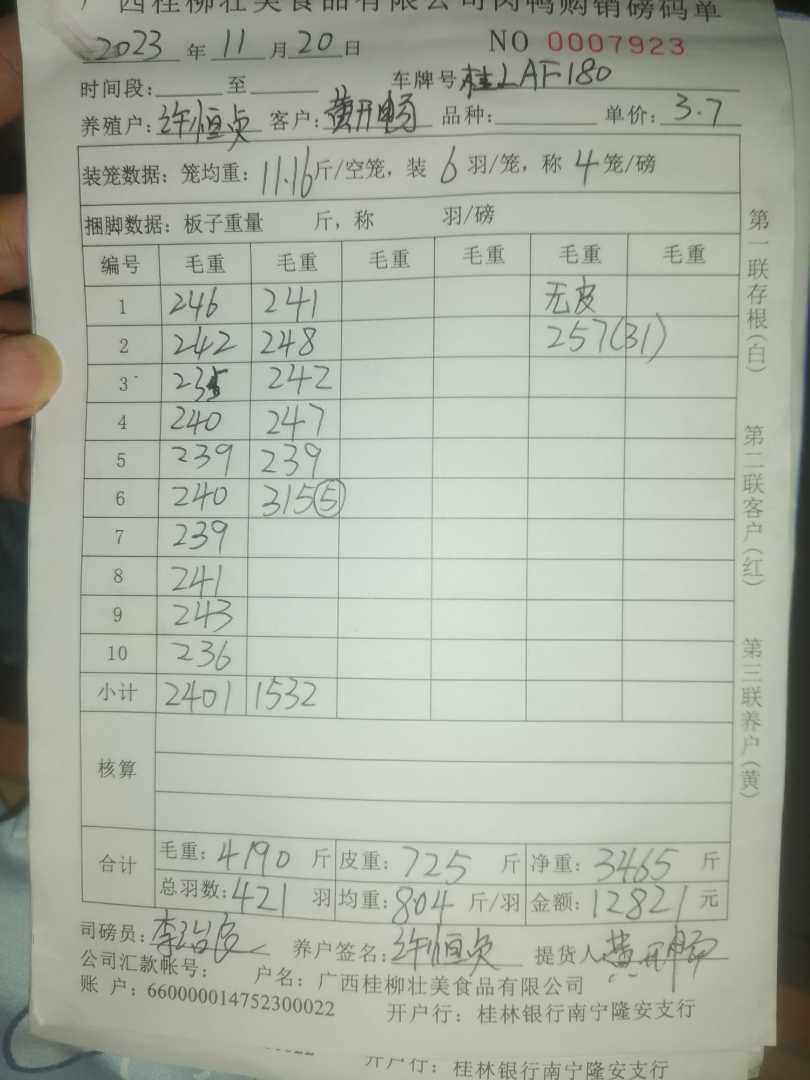 广西桂柳壮美食品有限公司肉鸭购销磅码单
2023 年 11 月 20 日 NO 0007923
时间段: 至 车牌号 桂LAF180
养殖户: 许恒贞 客户: 黄开畅 品种: 单价: 3.7
装笼数据: 笼均重: 11.16斤/空笼, 装 6 羽/笼, 称 4 笼/磅
捆脚数据: 板子重量 斤, 称 羽/磅
编号 毛重 毛重 毛重 毛重 毛重 毛重
1 246 241 无皮
2 242 248 257(31)
3 235 242
4 240 247
5 239 239
6 240 315⑤
7 239
8 241
9 243
10 236
小计 2401 1532
核算
合计 毛重: 4190 斤 皮重: 725 斤 净重: 3465 斤
总羽数: 421 羽 均重: 804 斤/羽 金额: 12821 元
司磅员: 李 养户签名: 许恒贞 提货人 黄开畅
公司汇款帐号: 户名: 广西桂柳壮美食品有限公司
账 户: 660000014752300022 开户行: 桂林银行南宁隆安支行
第一联存根(白) 第二联客户(红) 第三联养户(黄)
0022 开户行: 桂林银行南宁隆安支行